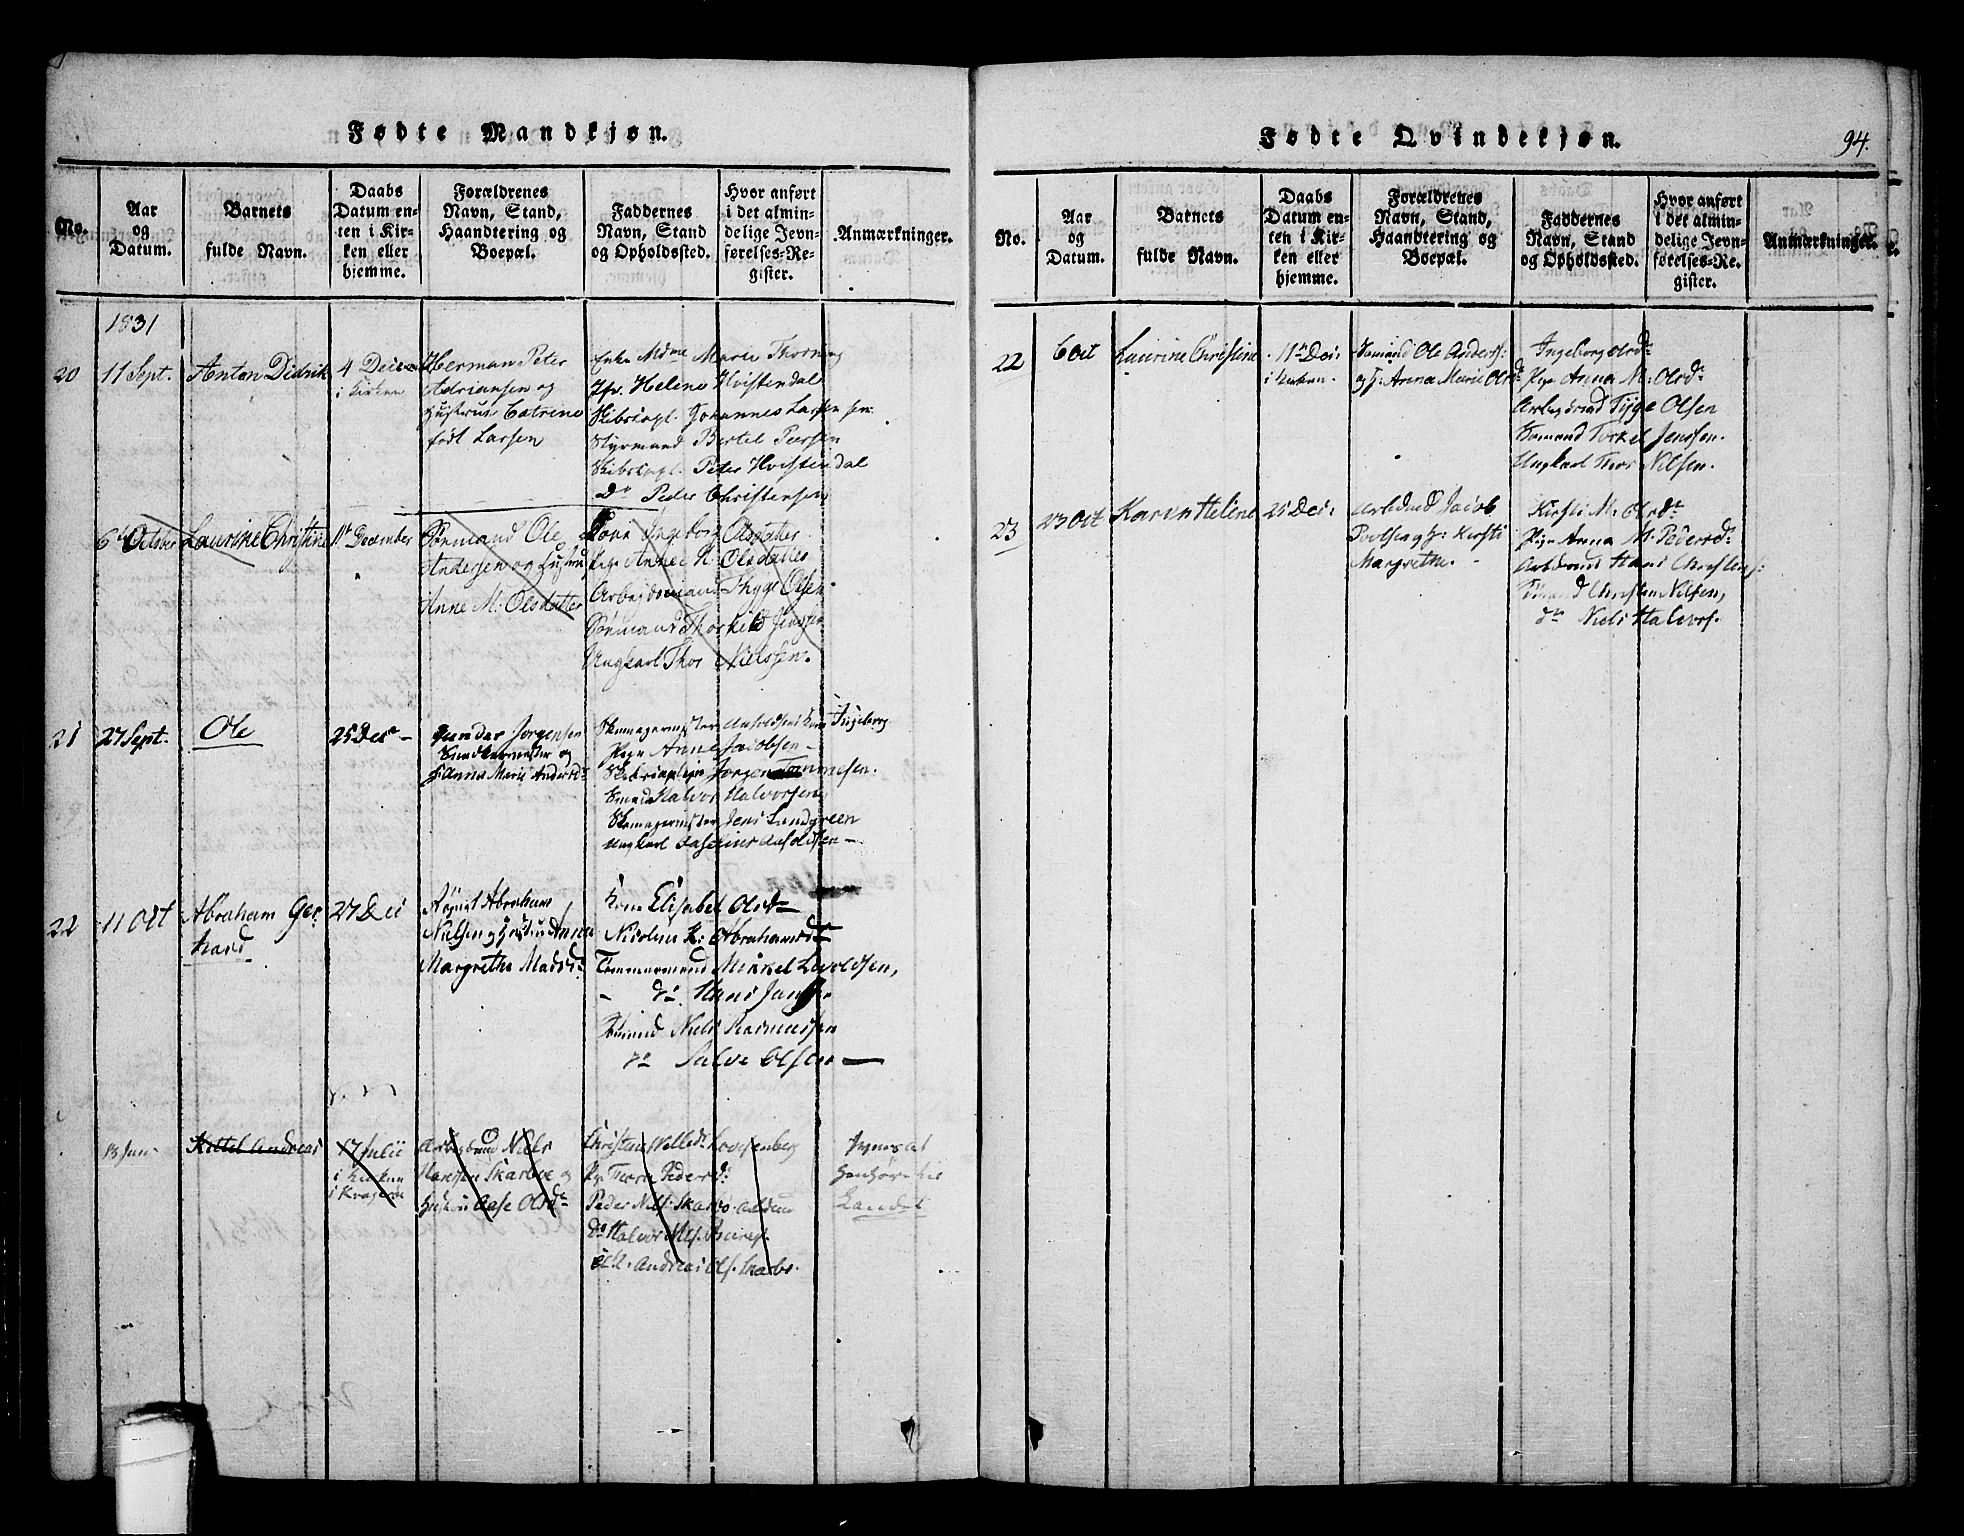 Fødte Mandkjøn.
No.
Aar
og
Datum.
Barnets
fulde Navn.
Daabs
Datum en-
ten i Kir-
ken eller
hjemme.
Forældrenes
Navn, Stand,
Haandtering og
Boepæl.
Faddernes
Navn, Stand
og Opholdssted.
Hvor anført
i det almin-
delige Jevn-
førelses-Re-
gister.
Anmærkninger.
1831
20
11 Sept.
Anton Didrik
4 Decem
i Kirken
Herman Peter
Adriansen og
Hustrue Catrine
født Larsen
Enke Mdme Marie Thorning
Jfr. Helene Hvistendal
Skibscapt. Johannes Larsen sen:
Styrmand Bertel Peersen
Skibscapt. Peter Hvistendal
Do Peder Christensen
6te October
Laurine Christine
11te December
Sømand Ole
Andersen og Hustru
Anne M: Olsdatter
Kone Ingeborg Olsdatter
Pige Anne M: Olsdatter
Arbejdsmand Thyge Olsen
Sømand Thorkild Jensen
Ungkarl Thor Nielssen.
21
27 Sept.
Ole
25 Dec
Gunder Jørgensen
Snedkermester og
H: Anna Marie Andersd:
Skomagermester Kone Ingeborg
Pige Anne Jacobsen
Skibscaptejn Jørgen Tommesen.
Smed Halvor Halvorsen,
Skomagermester Jens Lundgreen
Ungkarl
22
11 Oct
Abraham Ger-
hard
27 Dec
Abraham
Nielsen og Hustru Anne
Margrethe Madsd:
Kone Elisabet Olsd
Nicoline K: Abrahamsd
Tømmermand Mikkel Levoldsen,
do. Hans Jansen
Sømand Niels Rasmussen
do Salve Olsen
13 Jun
Kittel Andreas
17 Julii
i Kirken
i Kragerøe
Arbejdsmd Niels
Hanssen Skarboe og
Hustru Aase Olsd
Christens
Pige Thore Pedersd:
Peder Niels: Skarbo
do Halvor Niels.
Andreas Ols. Skarbo.
henhører til
Landet
Fødte Qvindekjøn.
94.
No.
Aar
og
Datum.
Barnets
fulde Navn.
Daabs
Datum en-
ten i Kir-
ken eller
hjemme.
Forældrenes
Navn, Stand,
Haandtering og
Boepæl.
Faddernes
Navn, Stand
og Opholdssted.
Hvor anført
i det almin-
delige Jevn-
førelses-Re-
gister.
Anmærkninger.
22
6 Oct
Laurine Christine
11te Dec:
i Kirken.
Sømand Ole Anders:
og H: Anna Marie Olsd:
Ingeborg Olsd:
Pige Anna M: Olsd:
Arbejdsmd Tyge Olsen
Sømand Torkel Jenssen.
Ungkarl Thor Nilsen.
23
23 Oct
Karen Helene
25 Dec:
Arbdmd Jacob
Povlsen og H: Kirsti
Margrethe.
Kirsti M: Olsd:
Pige Anna M: Pedersd:
Arbdmd Hans Christens:
Christen Nilsen,
do Niels Halvors.